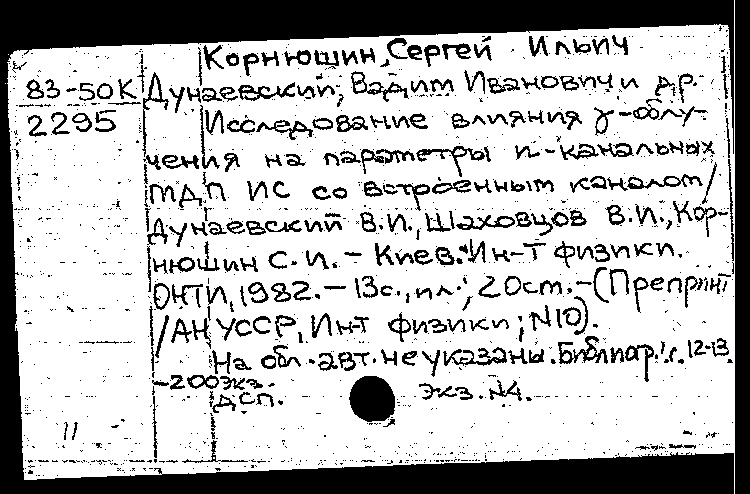 Корнюшин, Сергей Ильич
83-50К Дунаевский, Вадим Иванович и др.
2295 Исследование влияния γ-облу-
чения на параметры n-канальных
МДП ИС со встроенным каналом/
Дунаевский В.И., Шаховцов В.И., Кор-
нюшин С.И. – Киев: Ин-т физики.
ОНТИ, 1982. – 13с., ил.; 20см. – (Препринт
/АН УССР, Ин-т физики; №10).
На обл. авт. не указаны. Библиогр.: с. 12-13
-200экз.
ДСП. Экз. №4.
11